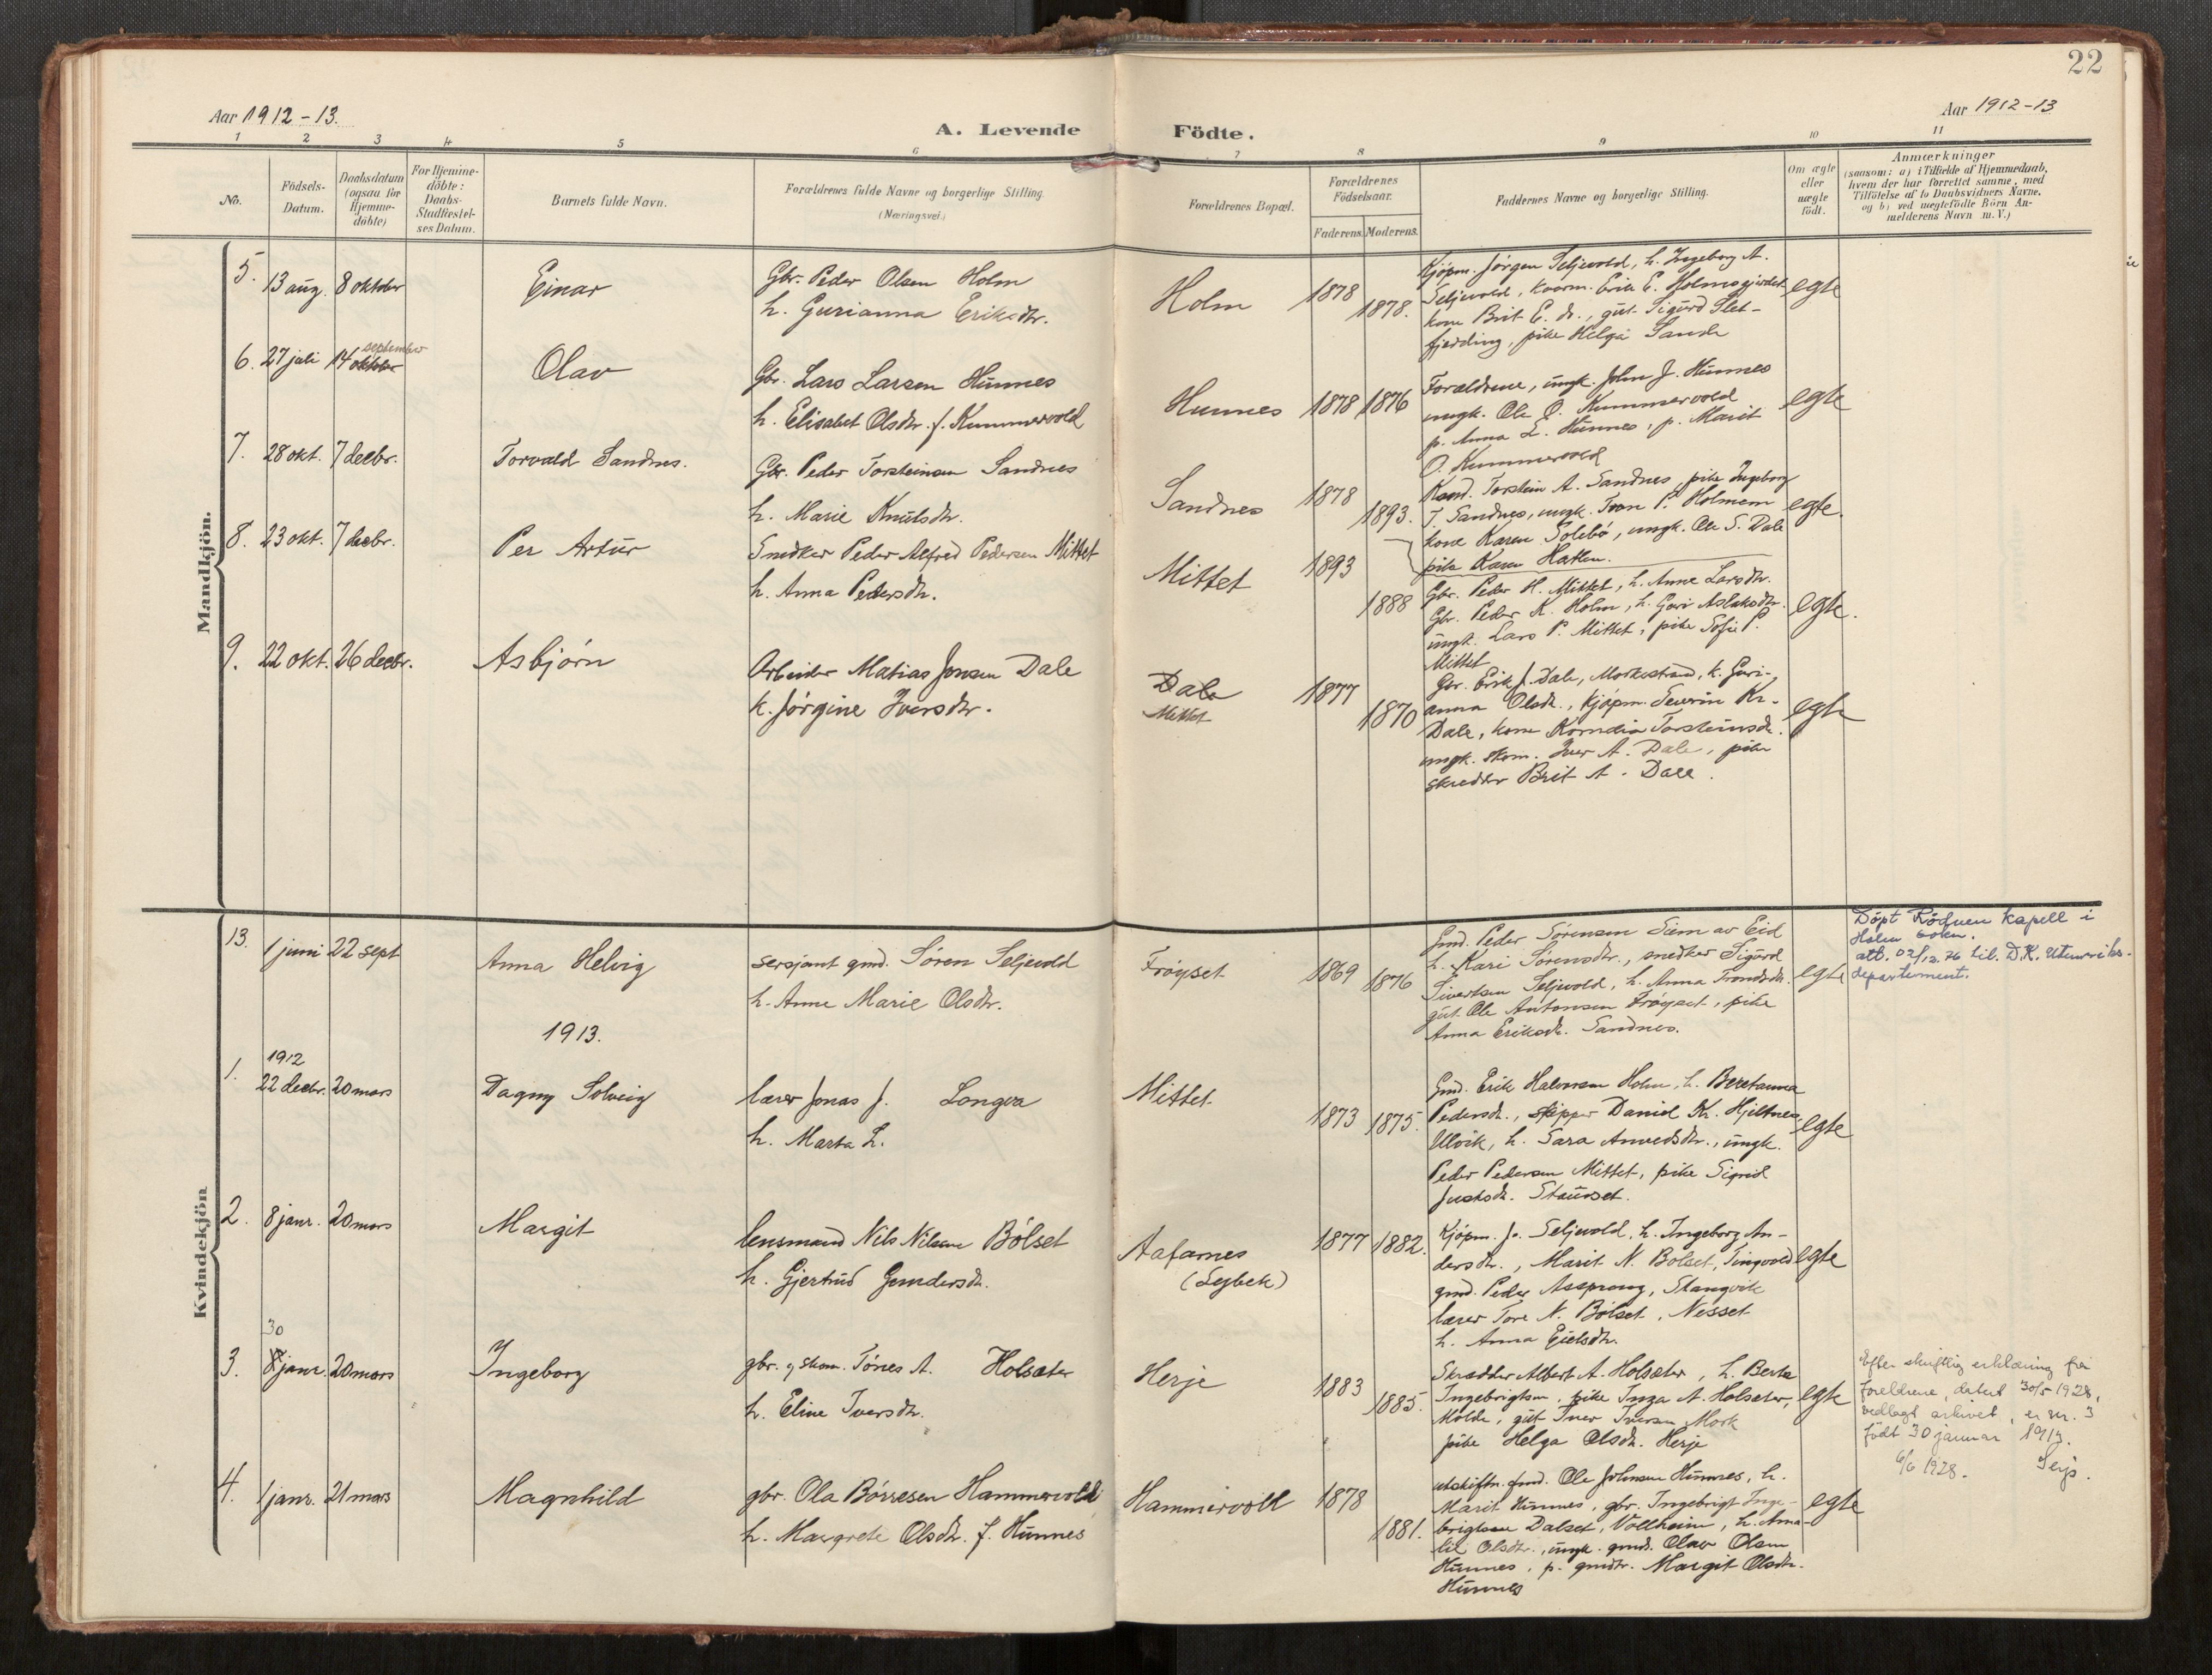 22
Aar 1912-13.
A. Levende Födte.
Aar 1912-13
1 2 3 4 5 6 7 8 9 10 11
No.
Födsels-Datum.
Daabsdatum (ogsaa for Hjemme-döbte)
For Hjemme-döbte: Daabs-Stadfæstel-ses Datum.
Barnets fulde Navn.
Forældrenes fulde Navne og borgerlige Stilling. (Næringsvei.)
Forældrenes Bopæl.
Forældrenes Födselsaar.
Faderens. Moderens.
Faddernes Navne og borgerlige Stilling.
Om ægte eller uægte födt.
Anmærkninger
(saasom: a) i Tilfælde af Hjemmedaab,
hvem der har forrettet samme, med
Tilföielse af to Daabsvidners Navne,
og b) ved uægtefödte Börn An-
melderens Navn m. V.)
Mandkjön.
5. 13 aug. 8 oktober Einar
Gbr. Peder Olsen Holm
h. Gurianna Eriksdtr.
Holm 1878 1878.
Kjøpm. Jørgen Seljevold, h. Ingeborg A.
Seljevold, kaarm. Erik E. Holmsgjerdet
kone Brit E. dr., gut. Sigurd Slet-
fjerding, pike Helga Sande
egte
6. 27 juli 14 oktober september Olav
Gbr. Lars Larsen Hunnes
h. Elisabet Olsdtr. f. Kummervold
Hunnes 1878 1876
Forældrene, ungk. John J. Hunnes
ungk. Ole O. Kummervold
p. Anna L. Hunnes, p. Marit
O. Kummervold
egte
7. 28 okt. 7 decbr. Torvald Sandnes.
Gbr. Peder Torsteinsen Sandnes
h. Marie Knutsdtr.
Sandnes 1878 1893.
Kand. Torstein A. Sandnes, pike Ingeborg
T. Sandnes, ungk. Tron P. Holmem
kone Karen Solebø, ungk. Ole S. Dale
pike Karen Hatlen.
egte.
8. 23 okt. 7 decbr. Per Artur
Snedker Peder Alfred Pedersen Mittet
h. Anna Pedersdtr.
Mittet 1893 1888
Gbr. Peder H. Mittet, h. Anne Larsdtr.
Gbr. Peder K. Holm, h. Guri Aslaksdtr.
ungk. Lars P. Mittet, pike Sofie P.
Mittet
egte.
9. 22 okt. 26 decbr. Asbjørn
Arbeider Matias Jonsen Dale
k. Jørgine Iversdtr.
Dale
Mittet
1877 1870
Gbr. Erik J. Dale, Morkestrand, k. Guri-
anna Olsdtr., kjøpm. Severin Kr.
Dale, kone Kornelia Torsteinsdr.
ungk. skom. Iver A. Dale, pike
skredder Brit A. Dale.
egte
Kvindekjön
13. 1 juni 22 sept Anna Helvig
sersjant gmd. Søren Seljevold
h. Anne Marie Olsdtr.
Frøyset 1869 1876
Gmd. Peder Sørensen Siem av Eid
h. Kari Sørensdtr., snedker Sigurd
Sivertsen Seljevold, h. Anna Trondsdtr.
gut. Ole Antonsen Frøyset, pike
Anna Eriksdr. Sandnes.
egte
Döpt Rödven kapell i
Holm sokn.
att. 02/12.76 til. D.K. Utenriks-
departement.
1913.
1. 1912 22 decbr. 20 mars Dagny Solveig
lærer Jonas J. Longva
h. Marta L.
Mittet 1873 1875.
Gmd. Erik Halvorsen Holm, h. Beretanna
Pedersdr., skipper Daniel Kr. Hjeltnes,
Ulvik, h. Sara Amundsdtr., ungk.
Peder Pedersen Mittet, pike Sigrid
Justsdr. Staurset.
egte
2. 8 janr. 20 mars Margit
lensmand Nils Nilsen Bølset
h. Gjertrud Gundersdr.
Aafarnes
(Lybek)
1877 1882.
Kjøpm. Jø. Seljevold, h. Ingeborg An-
dersdtr., Marit N. Bølset, Tingvold
gmd. Peder Asprong, Stangvik
lærer Tore N. Bølset, Nesset
h. Anna Eielsdtr.
egte
3. 30 8 janr. 20 mars Ingeborg
gbr. og skom. Tønes A. Holsæter
h. Eline Iversdtr.
Herje 1883 1885.
Skrædder Albert A. Holsæter, h. Berte
Ingebrigtsen, pike Inga A. Holsæter,
Molde, gut Iver Iversen Mork
pike Helga Olsdr. Herje
egte
Efter skriftlig erklæring fra
foreldrene, datert 30/5 1928,
vedlagt arkivet, er nr. 3
født 30 januar 1913.
6/6 1928.
4. 1 janr. 21 mars Magnhild
gbr. Ola Børresen Hammervold
h. Margrete Olsdtr. f. Hunnes
Hammervold 1878 1881.
utskiftn.fmd. Ole Johnsen Hunnes, h.
Marit Hunnes, gbr. Ingebrigt Inge-
brigtsen Dalset, Vollheim, h. Ama-
lie Olsdtr., ungk. gmds. Olav Olsen
Hunnes, p. gmdtr. Margit Olsdtr.
Hunnes
egte